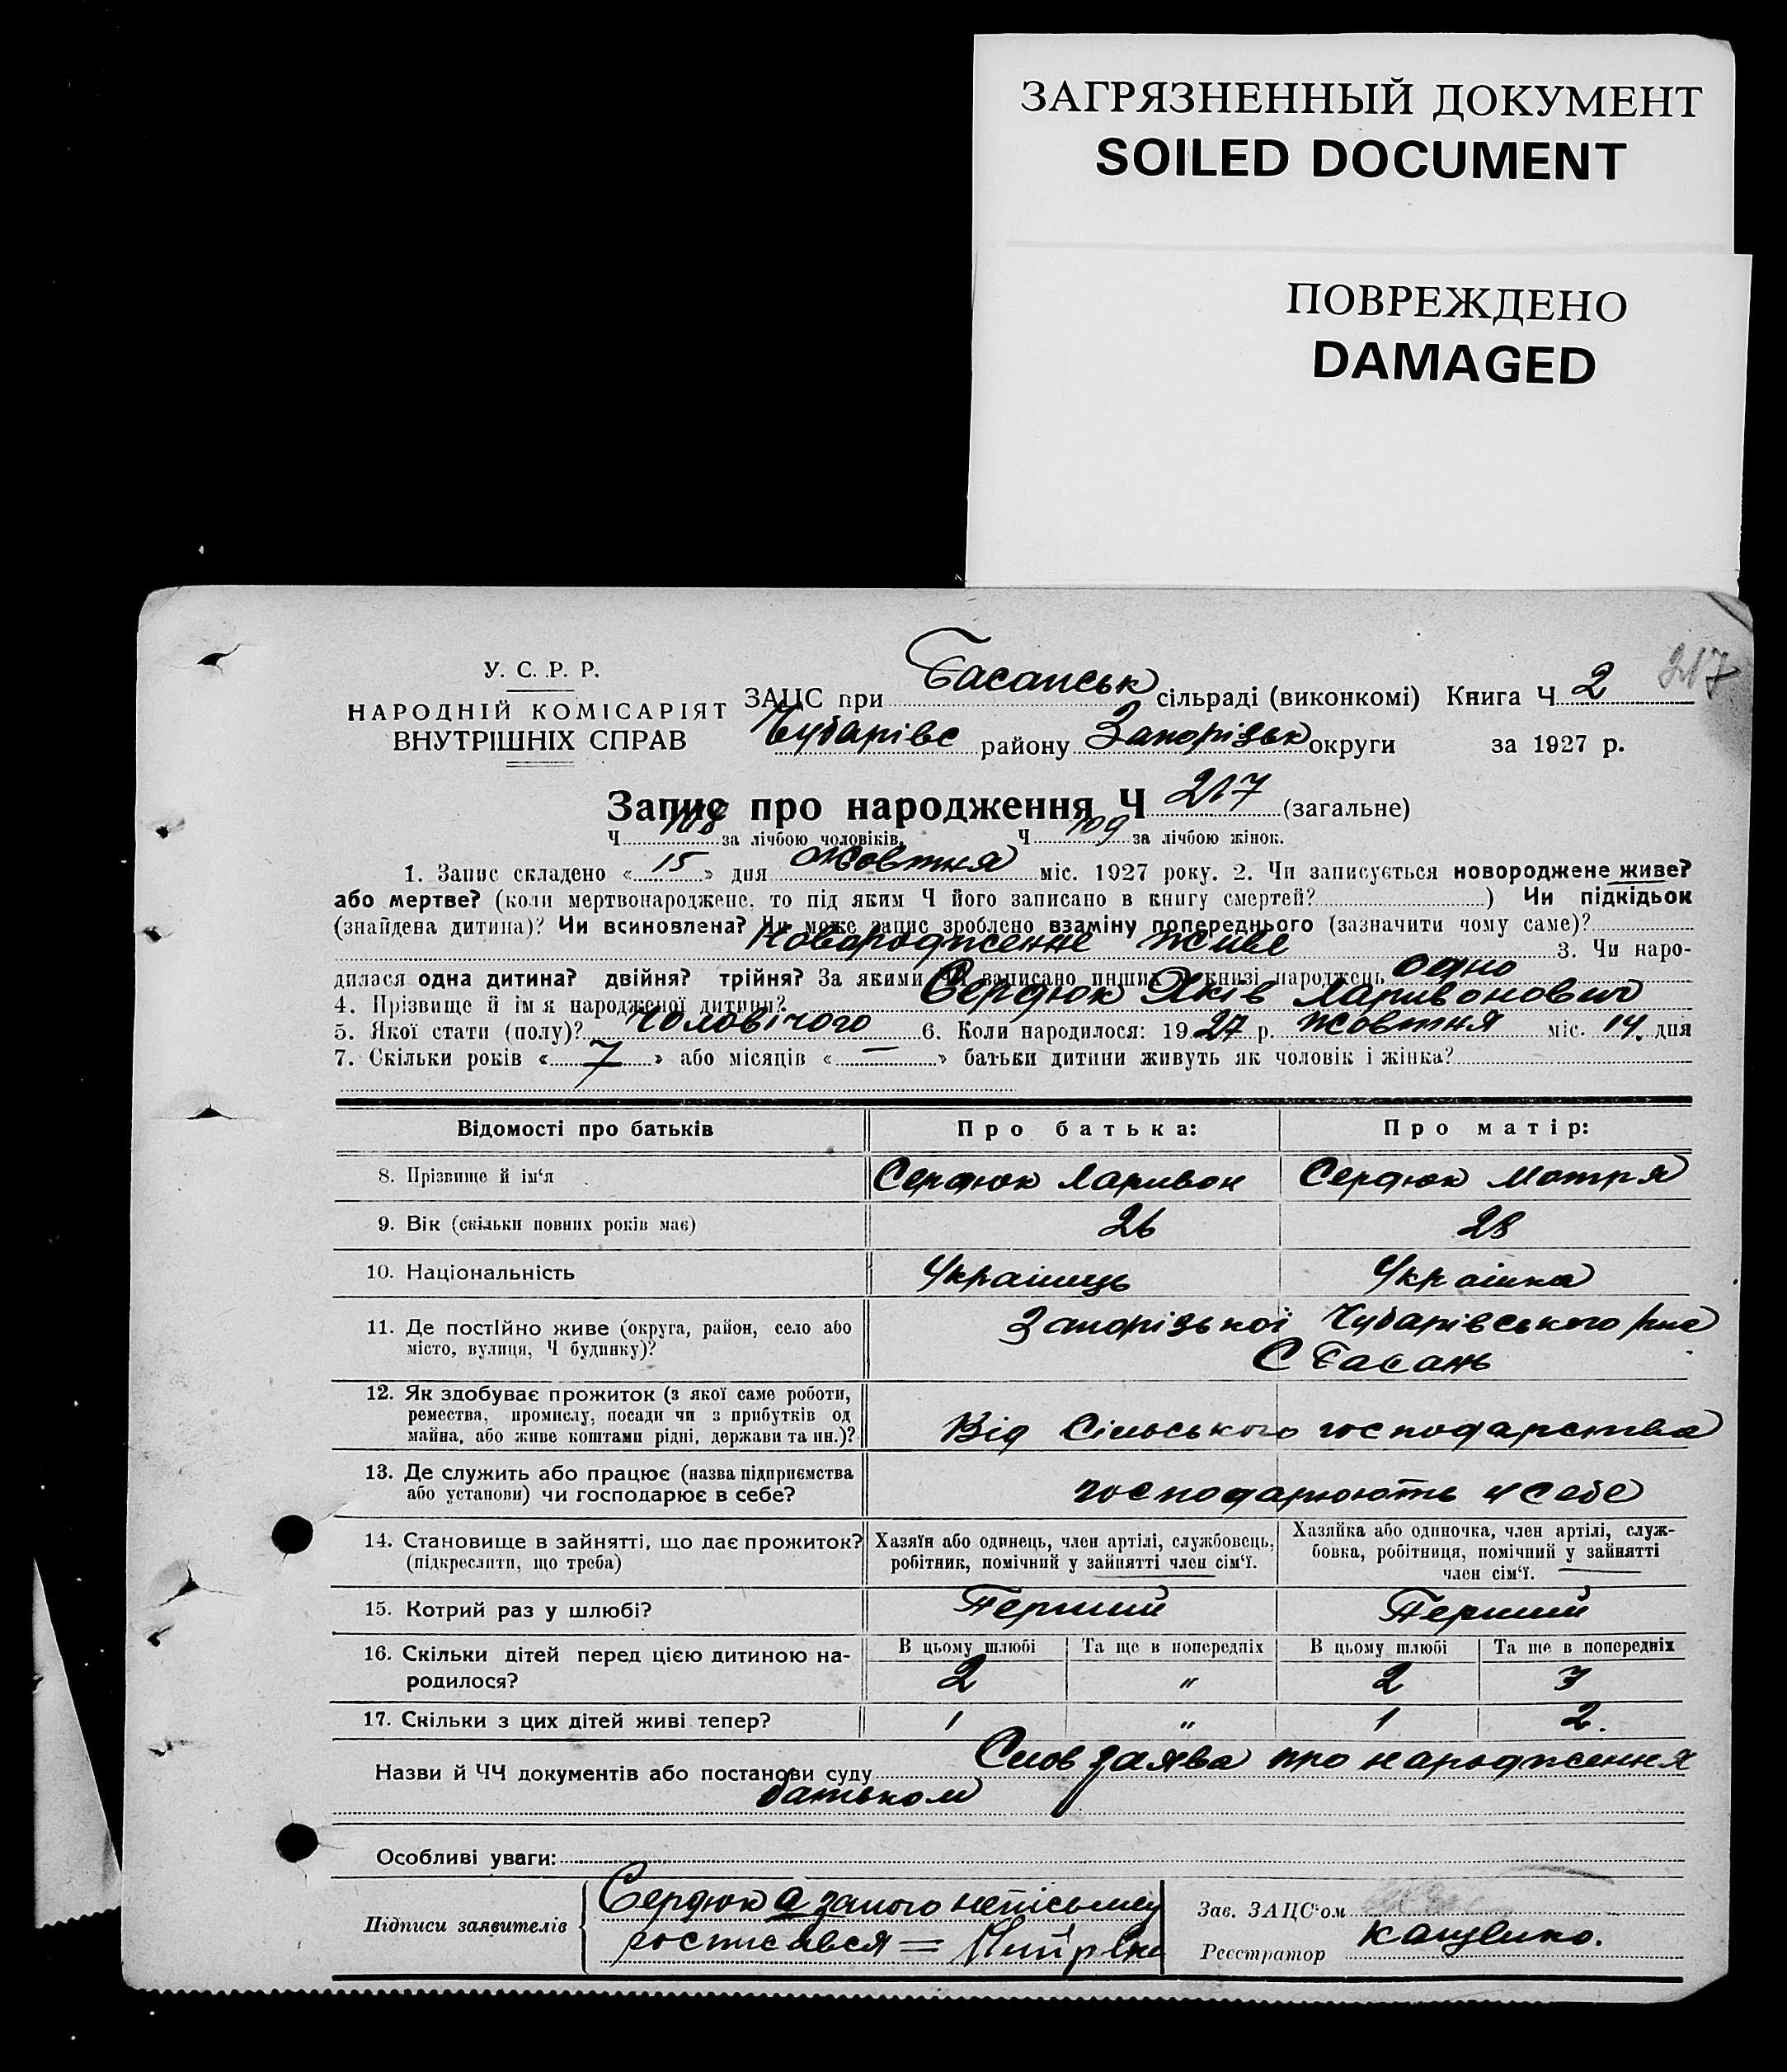 ЗАГРЯЗНЕННЫЙ ДОКУМЕНТ
SOILED DOCUMENT
ПОВРЕЖДЕНО
DAMAGED
217
У. С. Р. Р.
НАРОДНІЙ КОМІСАРІЯТ
ВНУТРІШНІХ СПРАВ
ЗАЦС при Басанськ сільраді (виконкомі) Книга Ч 2
Чубарівс району Запорізьк округи за 1927 р.
Запис про народження Ч 217 (загальне)
Ч 108 за лічбою чоловіків, Ч 109 за лічбою жінок.
1. Запис складено « 15 » дня жовтня міс. 1927 року. 2. Чи записується новороджене живе?
або мертве? (коли мертвонароджене, то під яким Ч його записано в книгу смертей? ) Чи підкідьок
(знайдена дитина)? Чи всиновлена? Чи може запис зроблено взаміну попереднього (зазначити чому саме)?
Новародженне живе 3. Чи наро-
дилася одна дитина? двійня? трійня? За якими ЧЧ записано инших в книзі народжень одно
4. Прізвище й імя народженої дитини? Сердюк Яків Ларивонович
5. Якої стати (полу)? Чоловічого 6. Коли народилося: 1927 р. жовтня міс. 14. дня
7. Скільки років « 7 » або місяців « — » батьки дитини живуть як чоловік і жінка?
Відомості про батьків Про батька: Про матір:
8. Прізвище й ім'я Сердюк Ларивон Сердюк Мотря
9. Вік (скільки повних років має) 26 28
10. Національність Українець Українка
11. Де постійно живе (округа, район, село або місто, вулиця, Ч будинку)? Запорізької Чубарівського
С Басань
12. Як здобуває прожиток (з якої саме роботи,
ремества, промислу, посади чи з прибутків од
майна, або живе коштами рідні, держави та ин.)? Від Сільського господарства
13. Де служить або працює (назва підприємства
або установи) чи господарює в себе? господарюють у себе
14. Становище в зайнятті, що дає прожиток?
(підкреслити, що треба)
Хазяїн або одинець, член артілі, службовець,
робітник, помічний у зайнятті член сім'ї.
Хазяйка або одиночка, член артілі, служ-
бовка, робітниця, помічний у зайнятті
член сім'ї.
15. Котрий раз у шлюбі? Перший Перший
16. Скільки дітей перед цією дитиною на-
родилося?
В цьому шлюбі Та ще в попередніх В цьому шлюбі Та ще в попередніх
2 " 2 3
17. Скільки з цих дітей живі тепер? 1 " 1 2.
Назви й ЧЧ документів або постанови суду Слов заява про народження
батьком
Особливі уваги:
Підписи заявителів Сердюк а
ростисався =
Зав. ЗАЦС'ом
Реєстратор